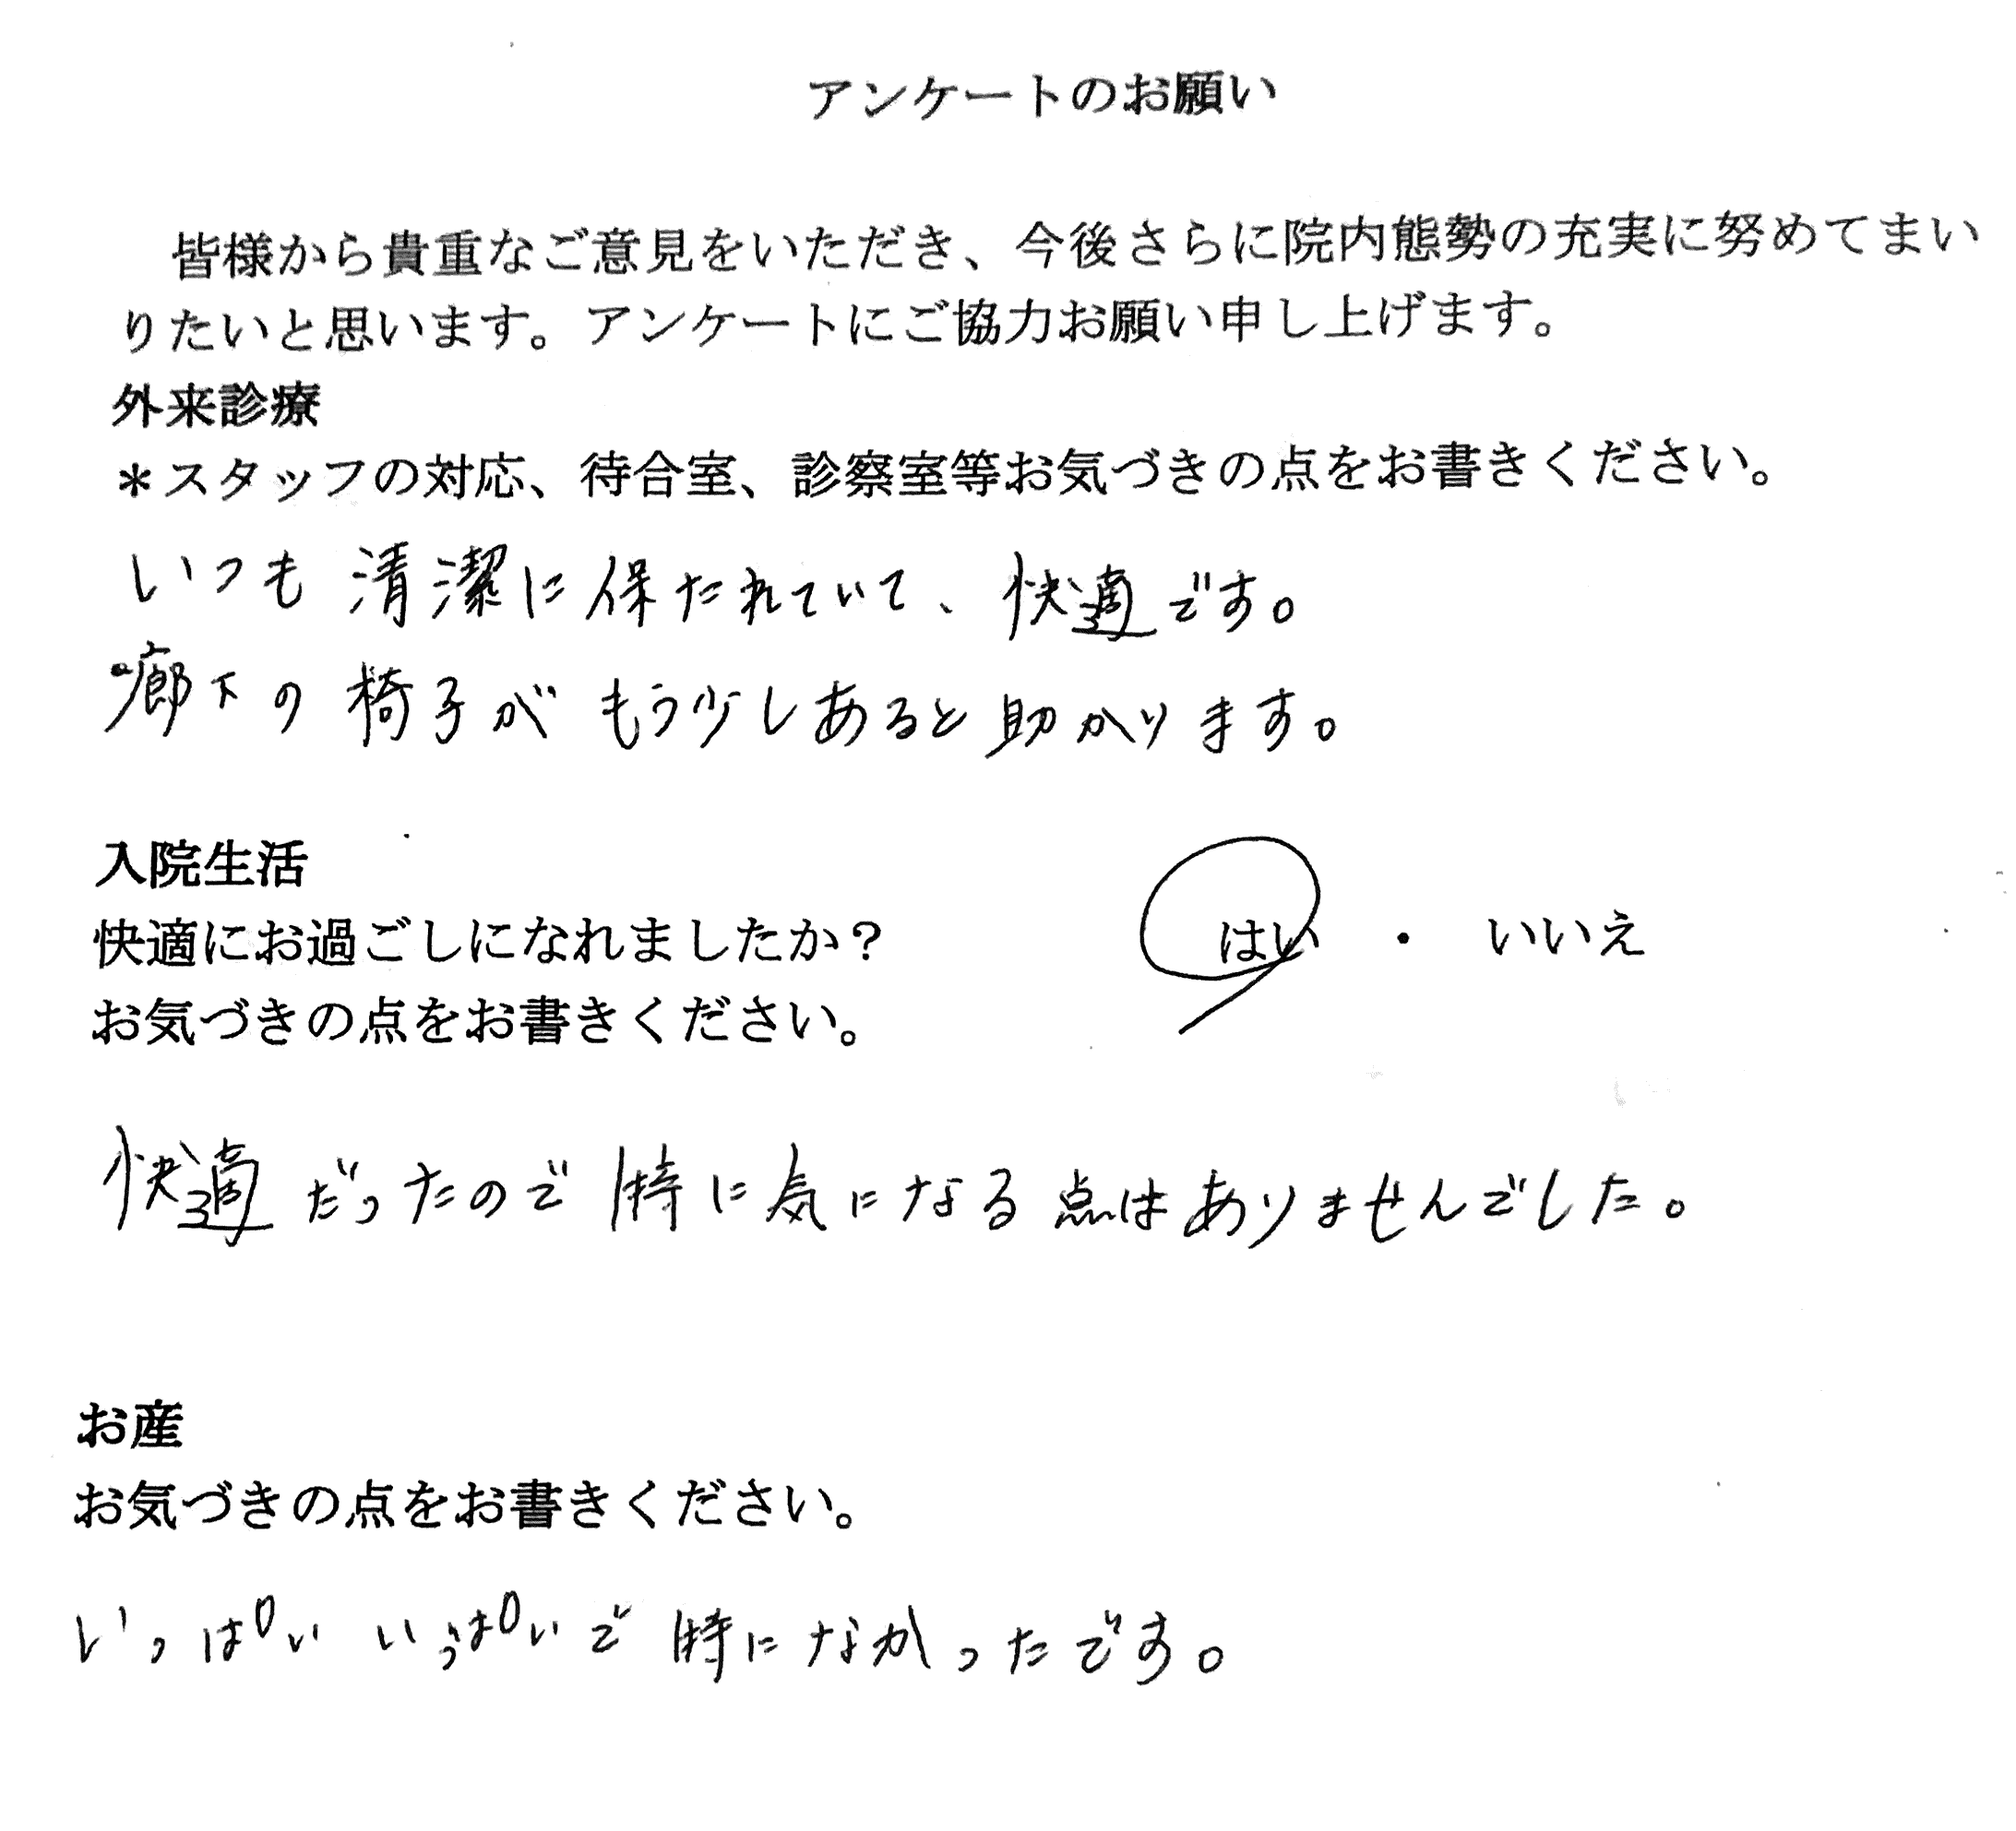 アンケートのお願い
皆様から貴重なご意見をいただき、今後さらに院内態勢の充実に努めてまい
りたいと思います。アンケートにご協力お願い申し上げます。
外来診療
＊スタッフの対応、待合室、診察室等お気づきの点をお書きください。
いつも清潔に保たれていて、快適です。
廊下の椅子がもう少しあると助かります。
入院生活
快適にお過ごしになれましたか？ はい ・ いいえ
お気づきの点をお書きください。
快適だったので特に気になる点はありませんでした。
お産
お気づきの点をお書きください。
いっぱいいっぱいで特になかったです。